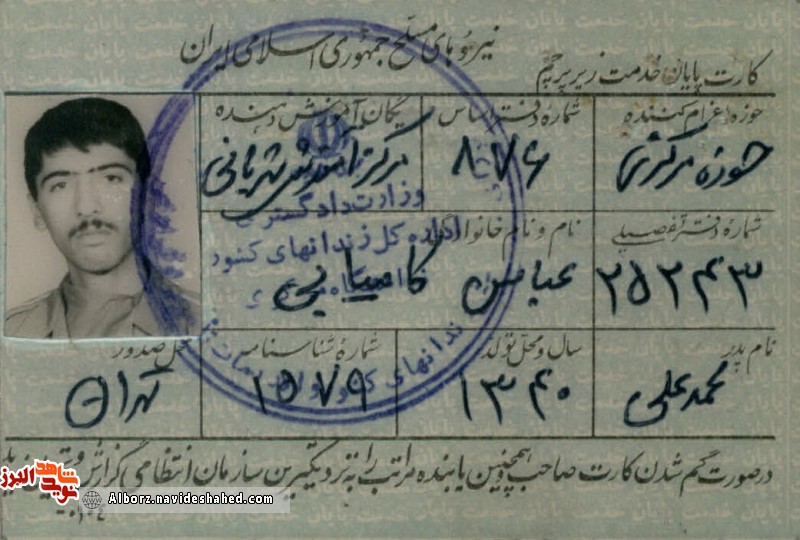 نیروهای مسلح جمهوری اسلامی ایران
کارت پایان خدمت زیر پرچم
حوزه اعزام کننده
حوزه مرکزی
شماره دفتر اساس
۸۰۷۶
یگان آموزش دهنده
مرکز آموزش شهربانی
شماره دفتر تفصیلی
۲۵۲۴۳
نام و نام خانوادگی
عباس کامیابی
نام پدر
محمدعلی
سال و محل تولد
۱۳۴۰
شماره شناسنامه
۱۵۷۹
محل صدور
تهران
در صورت گم شدن کارت صاحب و همچنین یابنده مراتب را به نزدیکترین سازمان انتظامی گزارش
وزارت دادگستری
اداره کل زندانهای کشور
شاهد
نوید
البرز
Alborz.navideshahed.com